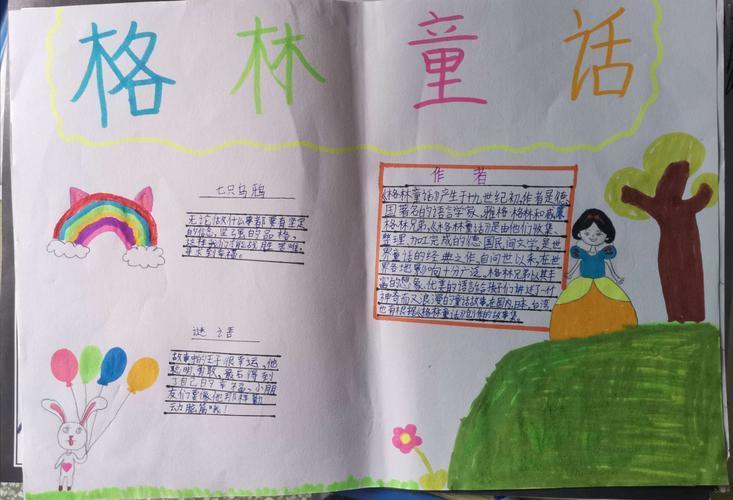 格林童话
七只乌鸦
无论做什么事都要有坚定
的信念，坚强的品格，
这样我们才能战胜困难，
得到幸福。
谜语
故事中的王子很幸运，他
聪明勇敢，最后得到
了自己的幸福。小朋
友们要像他那样勤
动脑筋哦！
作者
《格林童话》产生于十九世纪初，作者是德
国著名的语言学家，雅格·格林和威廉·
格林兄弟。《格林童话》是由他们收集、
整理、加工完成的德国民间文学，是世
界童话的经典之作，自问世以来，在世
界各地影响十分广泛。格林兄弟以其丰
富的想象、优美的语言给孩子们讲述了一个
神奇而又浪漫的童话故事。在国内、日本、台湾
也有根据《格林童话》创作的故事集。